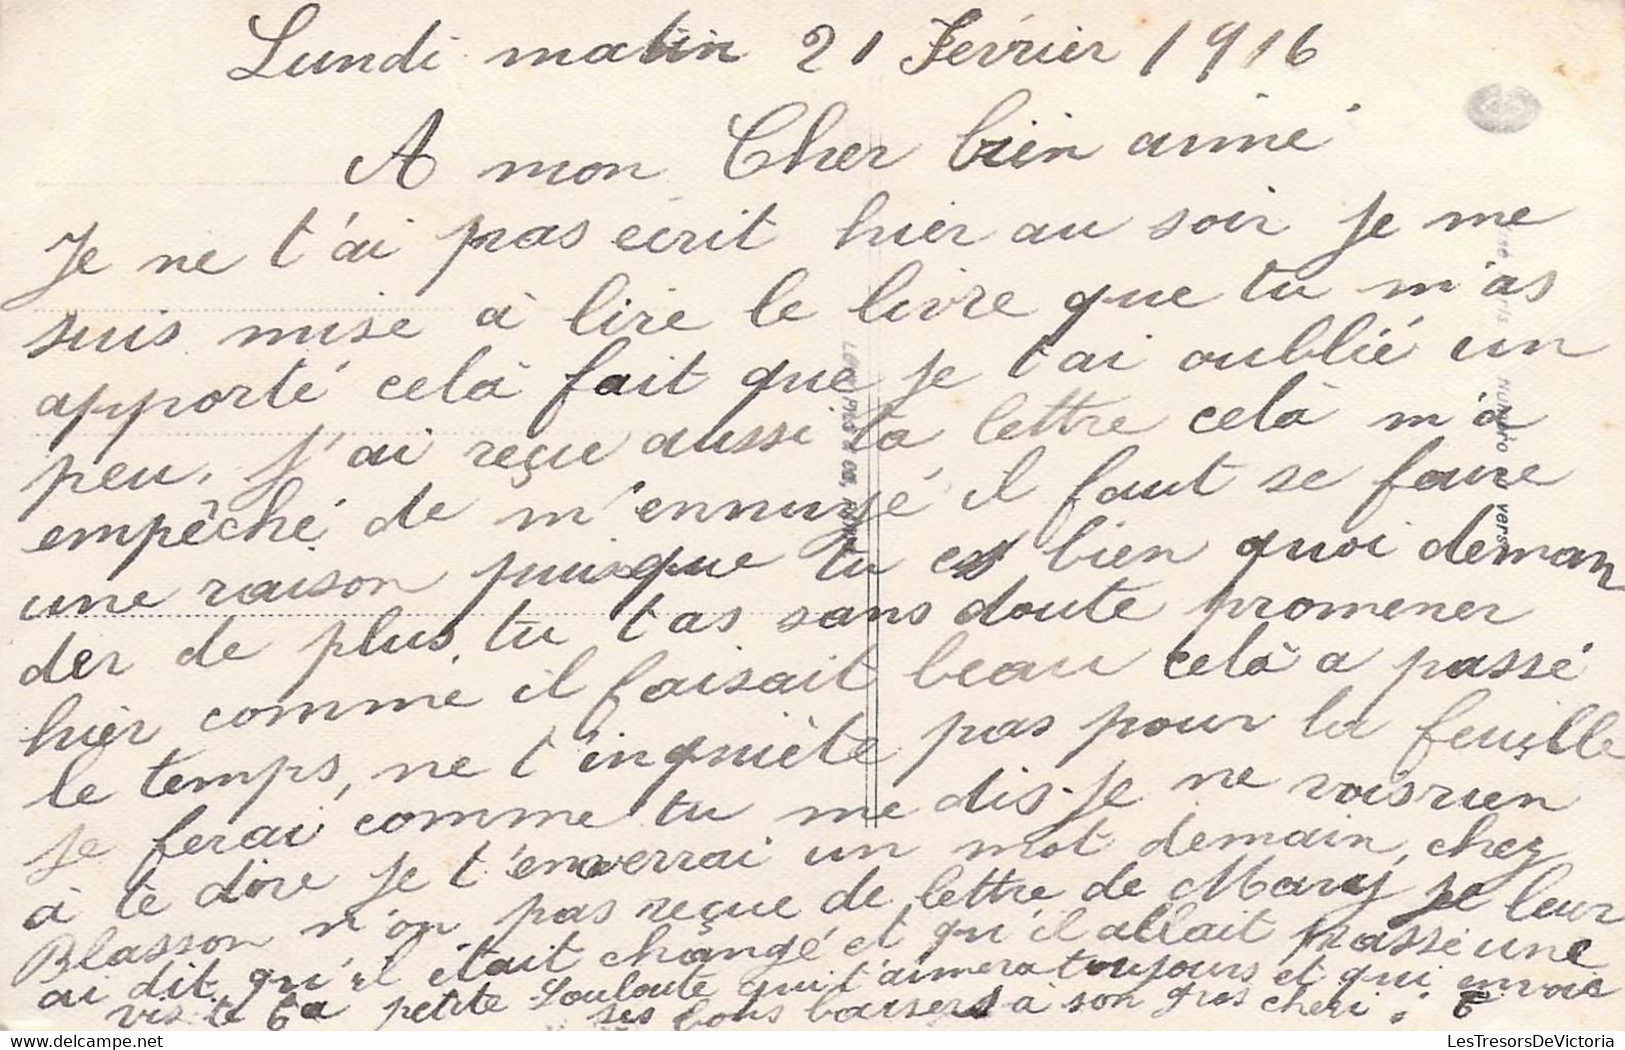 Lundi matin 21 Février 1916
A mon Cher bien aimé
Je ne t'ai pas écrit hier au soir je me
suis mise à lire le livre que tu m'as
apporté celà fait que je t'ai oublié un
peu. J'ai reçue aussi ta lettre celà m'a
empêché de m'ennuyé il faut se faire
une raison puisque tu es bien quoi deman
der de plus, tu t'as sans doute promener
hier comme il faisait beau celà a passé
le temps, ne t'inquiète pas pour la feuille
je ferai comme tu me dis. Je ne vois rien
à te dire je t'enverrai un mot demain, chez
Blasson n'on pas reçue de lettre de Mary je leur
ai dit qu'il était changé et qu'il allait passé une
vis te ta petite Louloute qui t'aimera toujours et qui envoie
ses bons baisers à son gros cheri.
LesTresorsDeVictoria